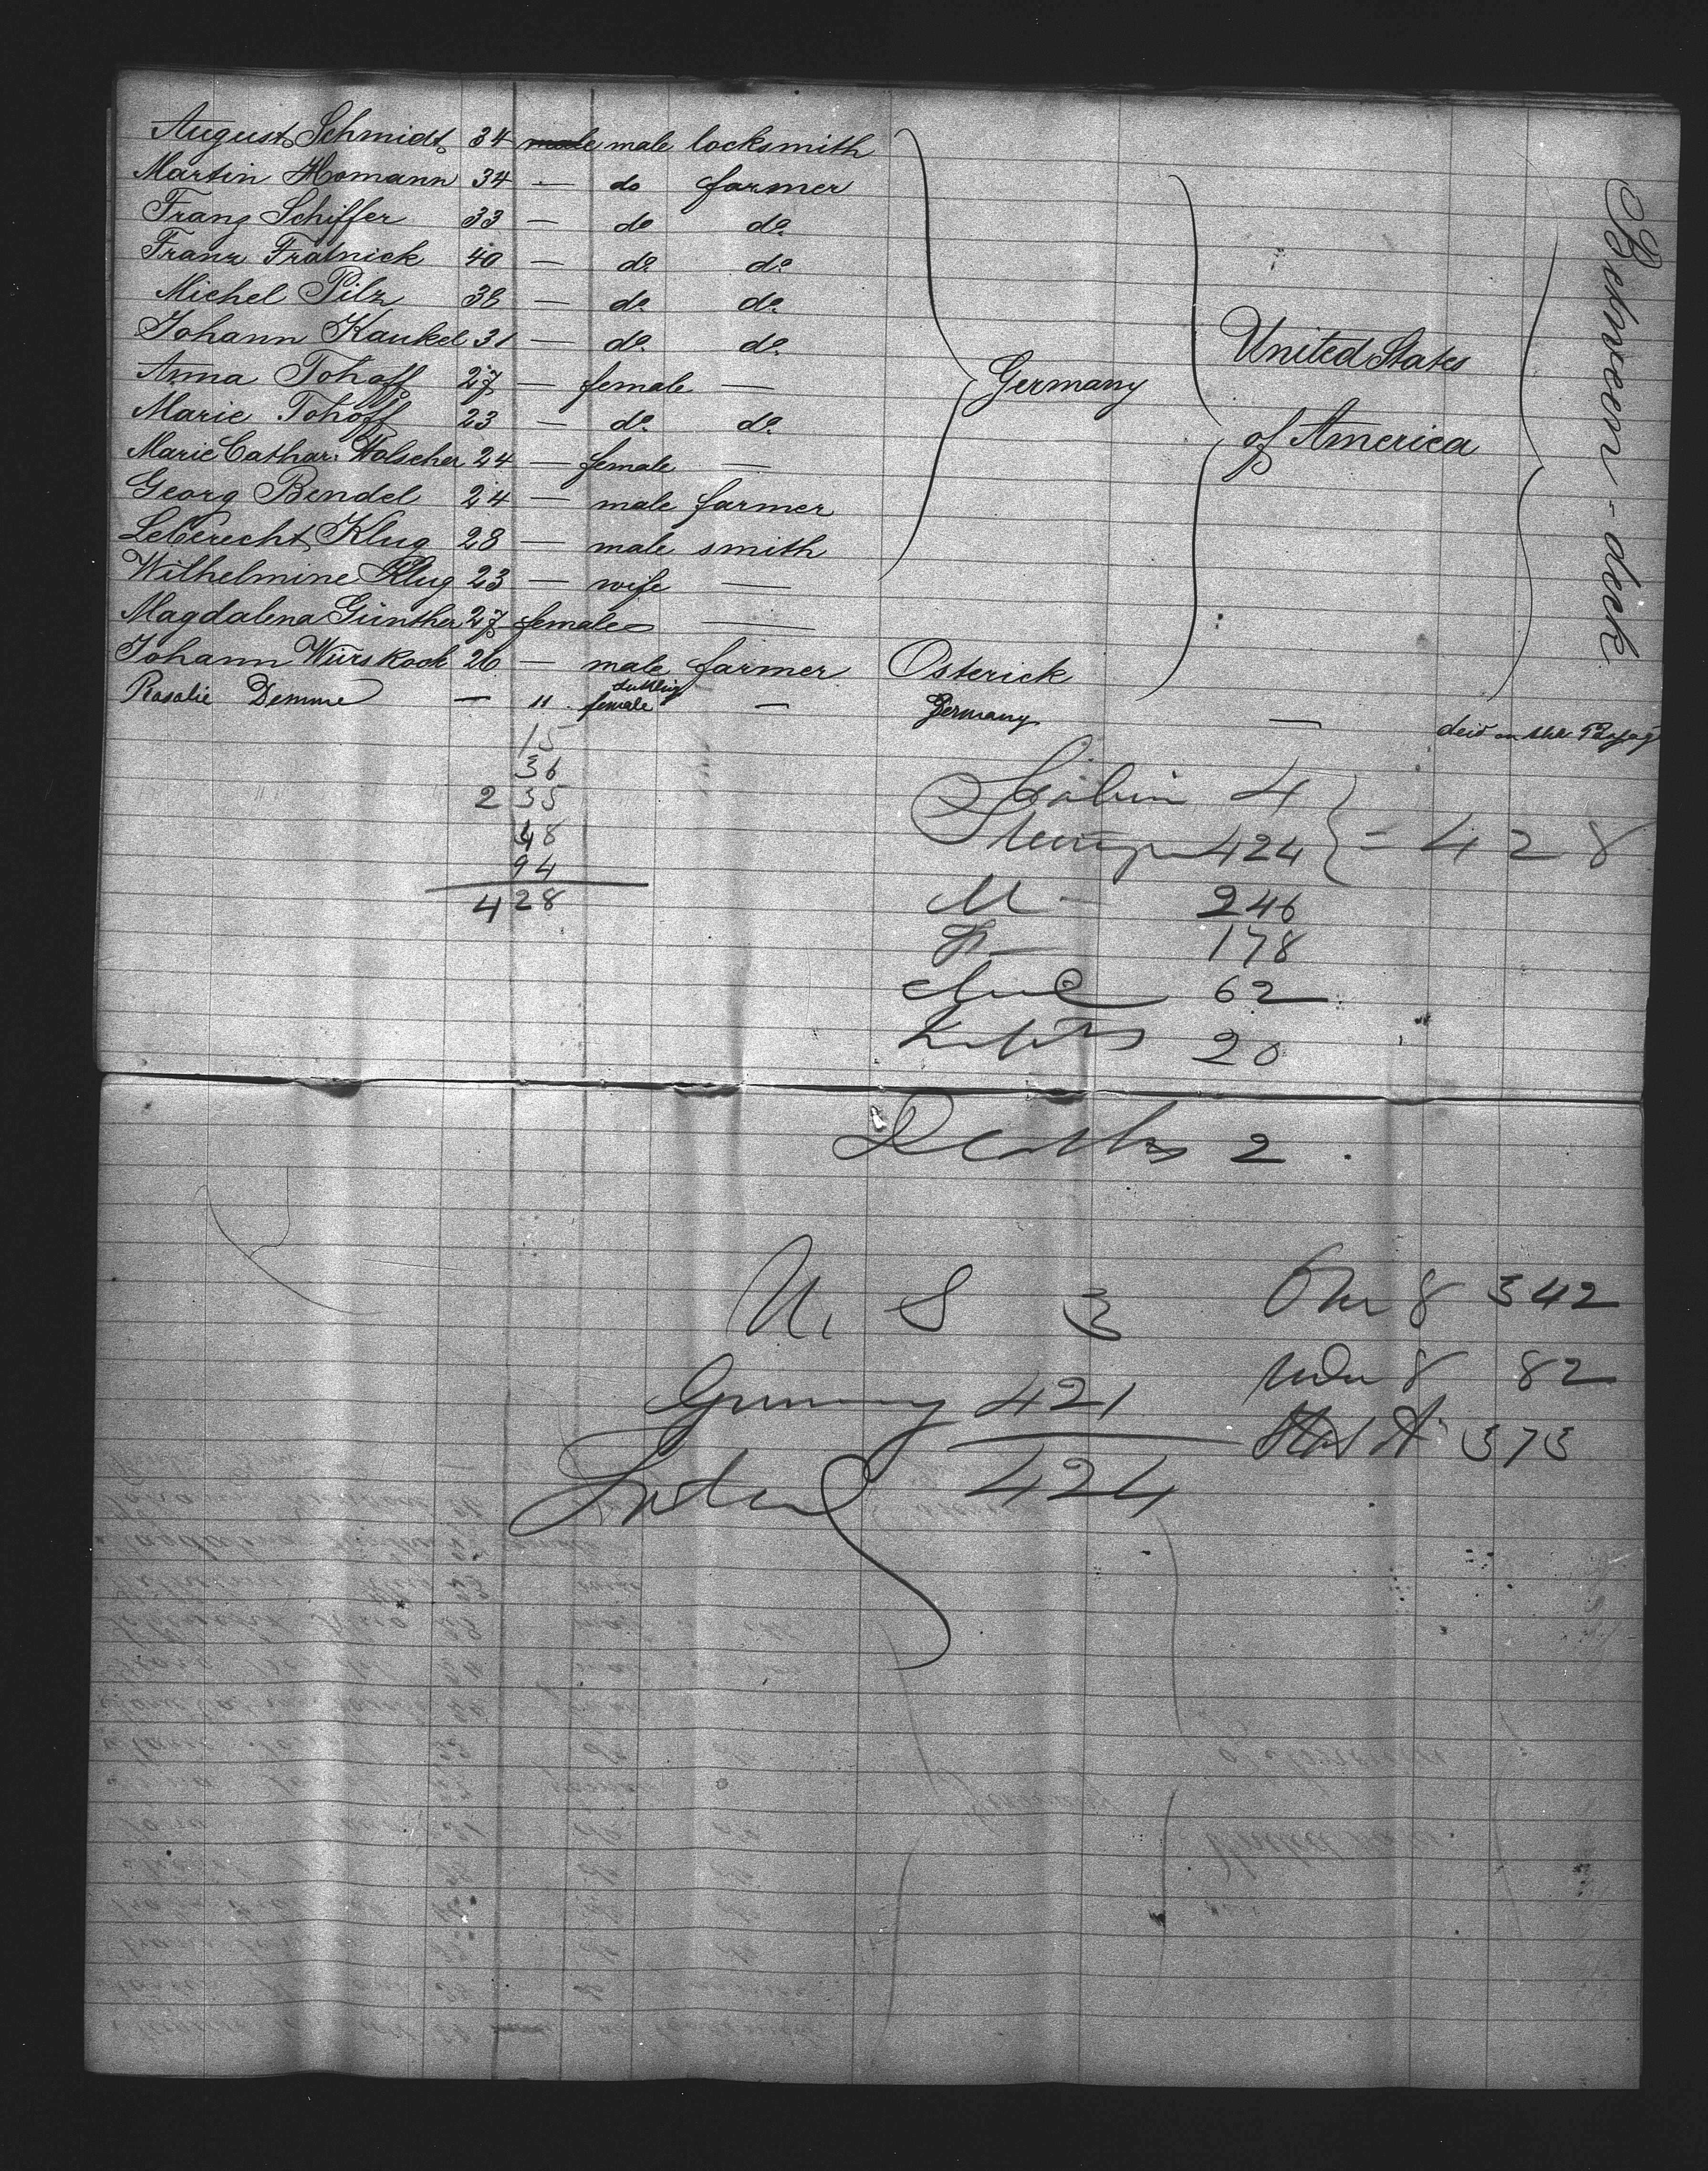 August Schmidt 34 male male locksmith
Martin Homann 34 — do farmer
Franz Schiffer 33 — do do
Franz Fratnick 40 — do do
Michel Pilz 38 — do do
Johann Kaukel 31 — do do
Anna Tohoff 27 — female —
Marie Tohoff 23 — do do
Marie Cathar. Wolscher 24 — female —
Georg Bendel 24 — male farmer
Leberecht Klug 28 — male smith
Wilhelmine Klug 23 — wife —
Magdalena Günther 27 female —
Johann Würskock 26 — male farmer Osterick
Rosalie Demme — " female — Germany — deid on the
Germany
United States
of America
Between-deck
15
36
235
48
94
428
Cabin 4
424 = 428
M — 246
F — 178
62
20
Deaths 2
U. S 3
Germany 421
Total 424
Over 8 342
Under 8 82
373